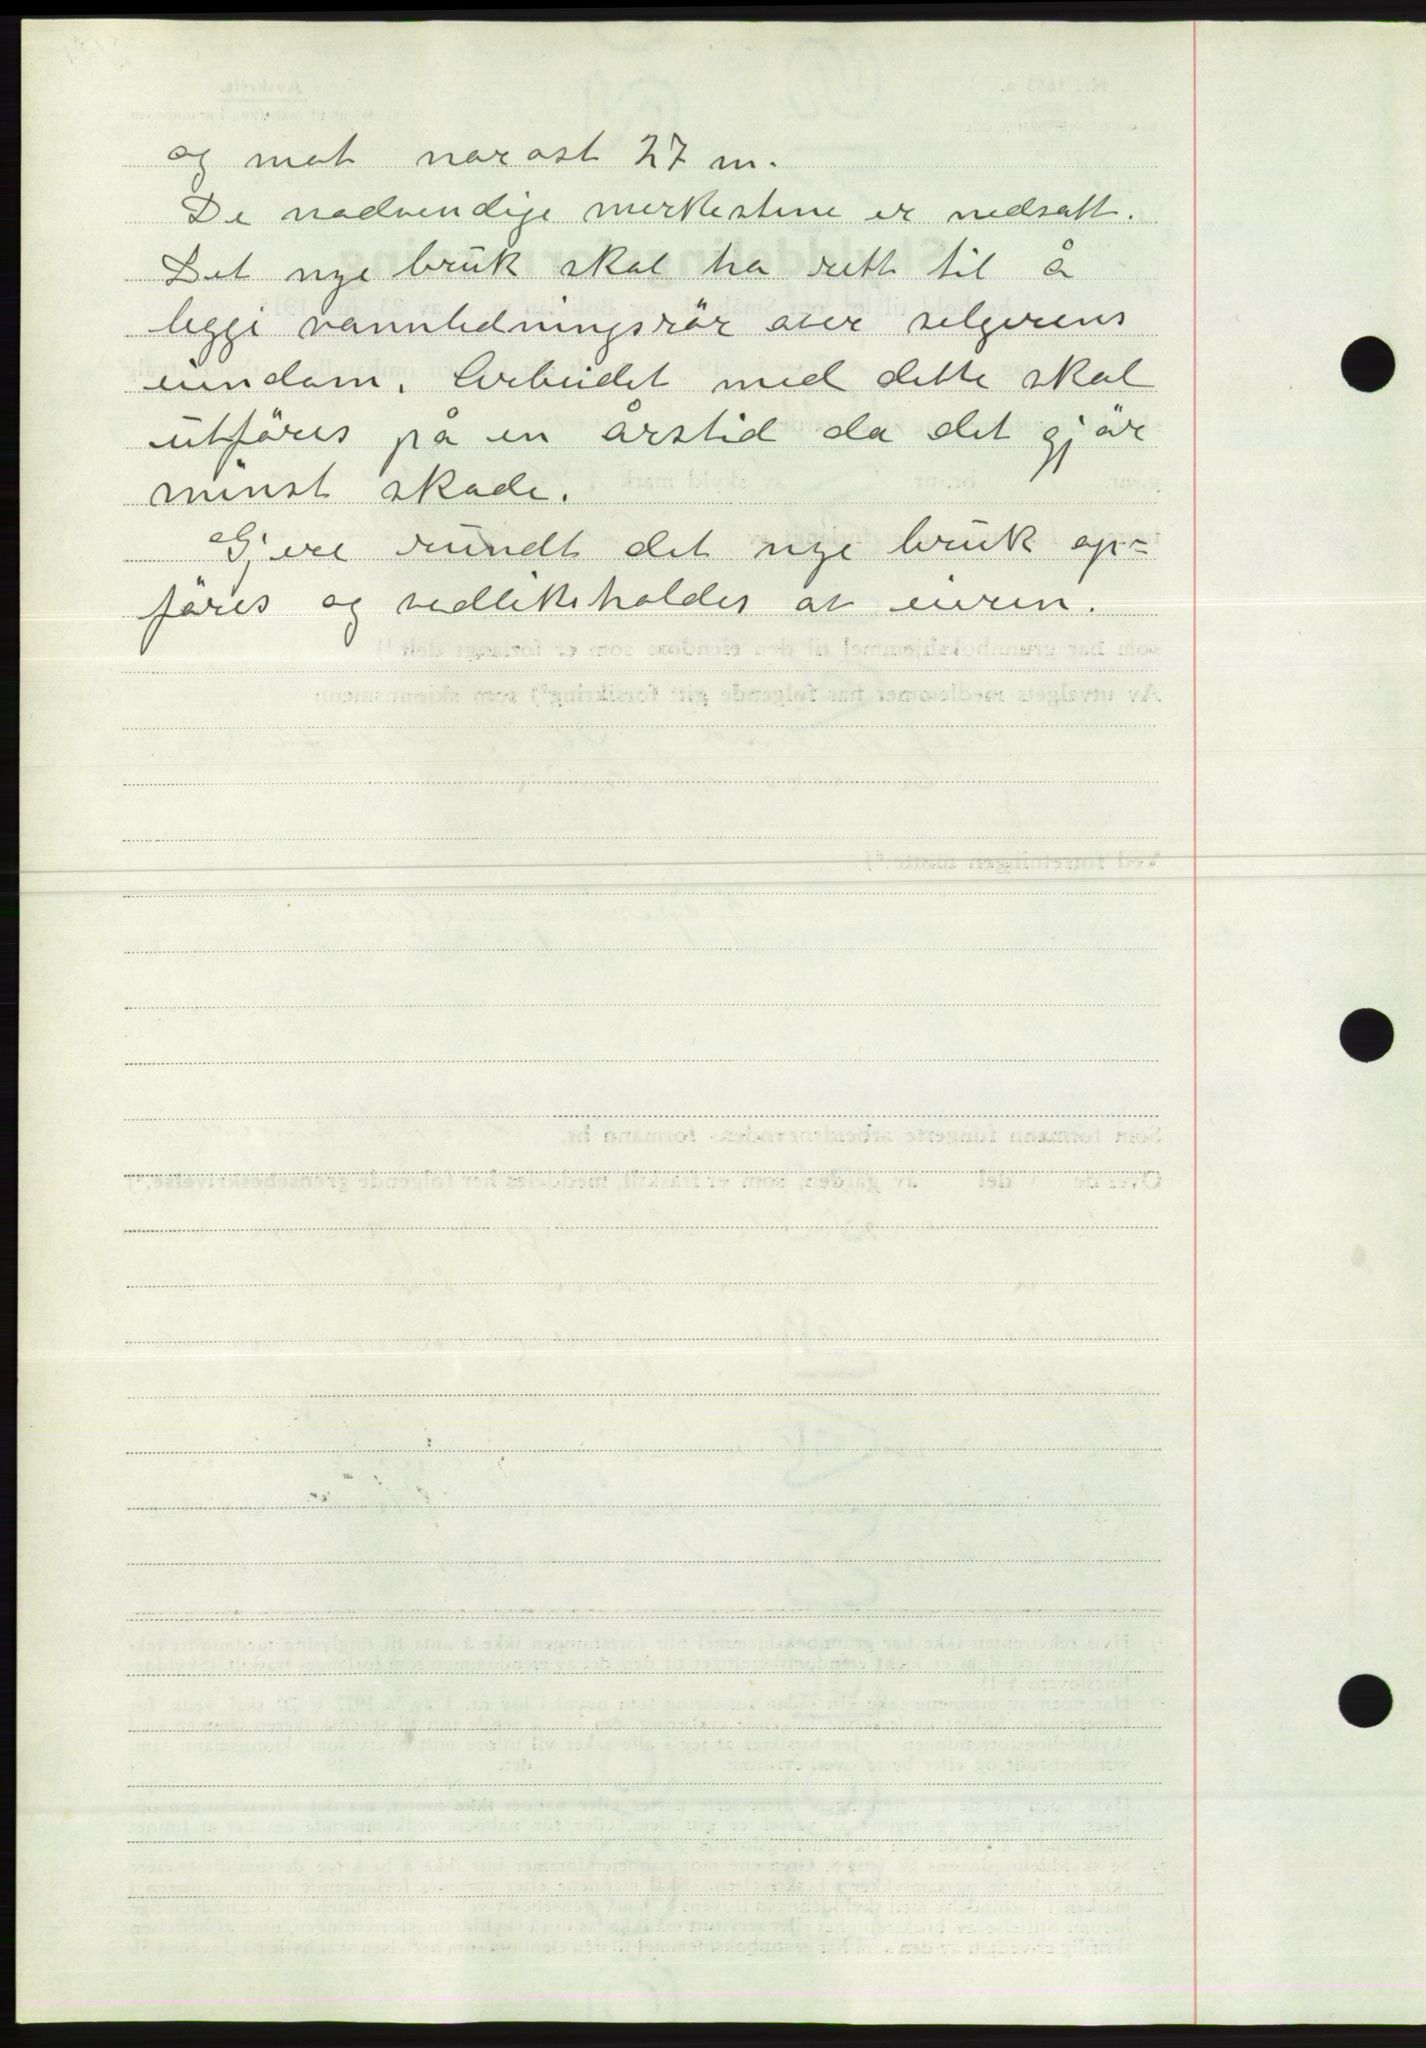 og mot nordost 27 m.
De nødvendige merkestene er nedsatt.
Det nye bruk skal ha rett til å
legge vannledningsrör over selgerens
eiendom. Arbeidet med dette skal
utföres på en årstid da det gjör
minst skade.
Gjere rundt det nye bruk op=
föres og vedlikeholdes av eieren.